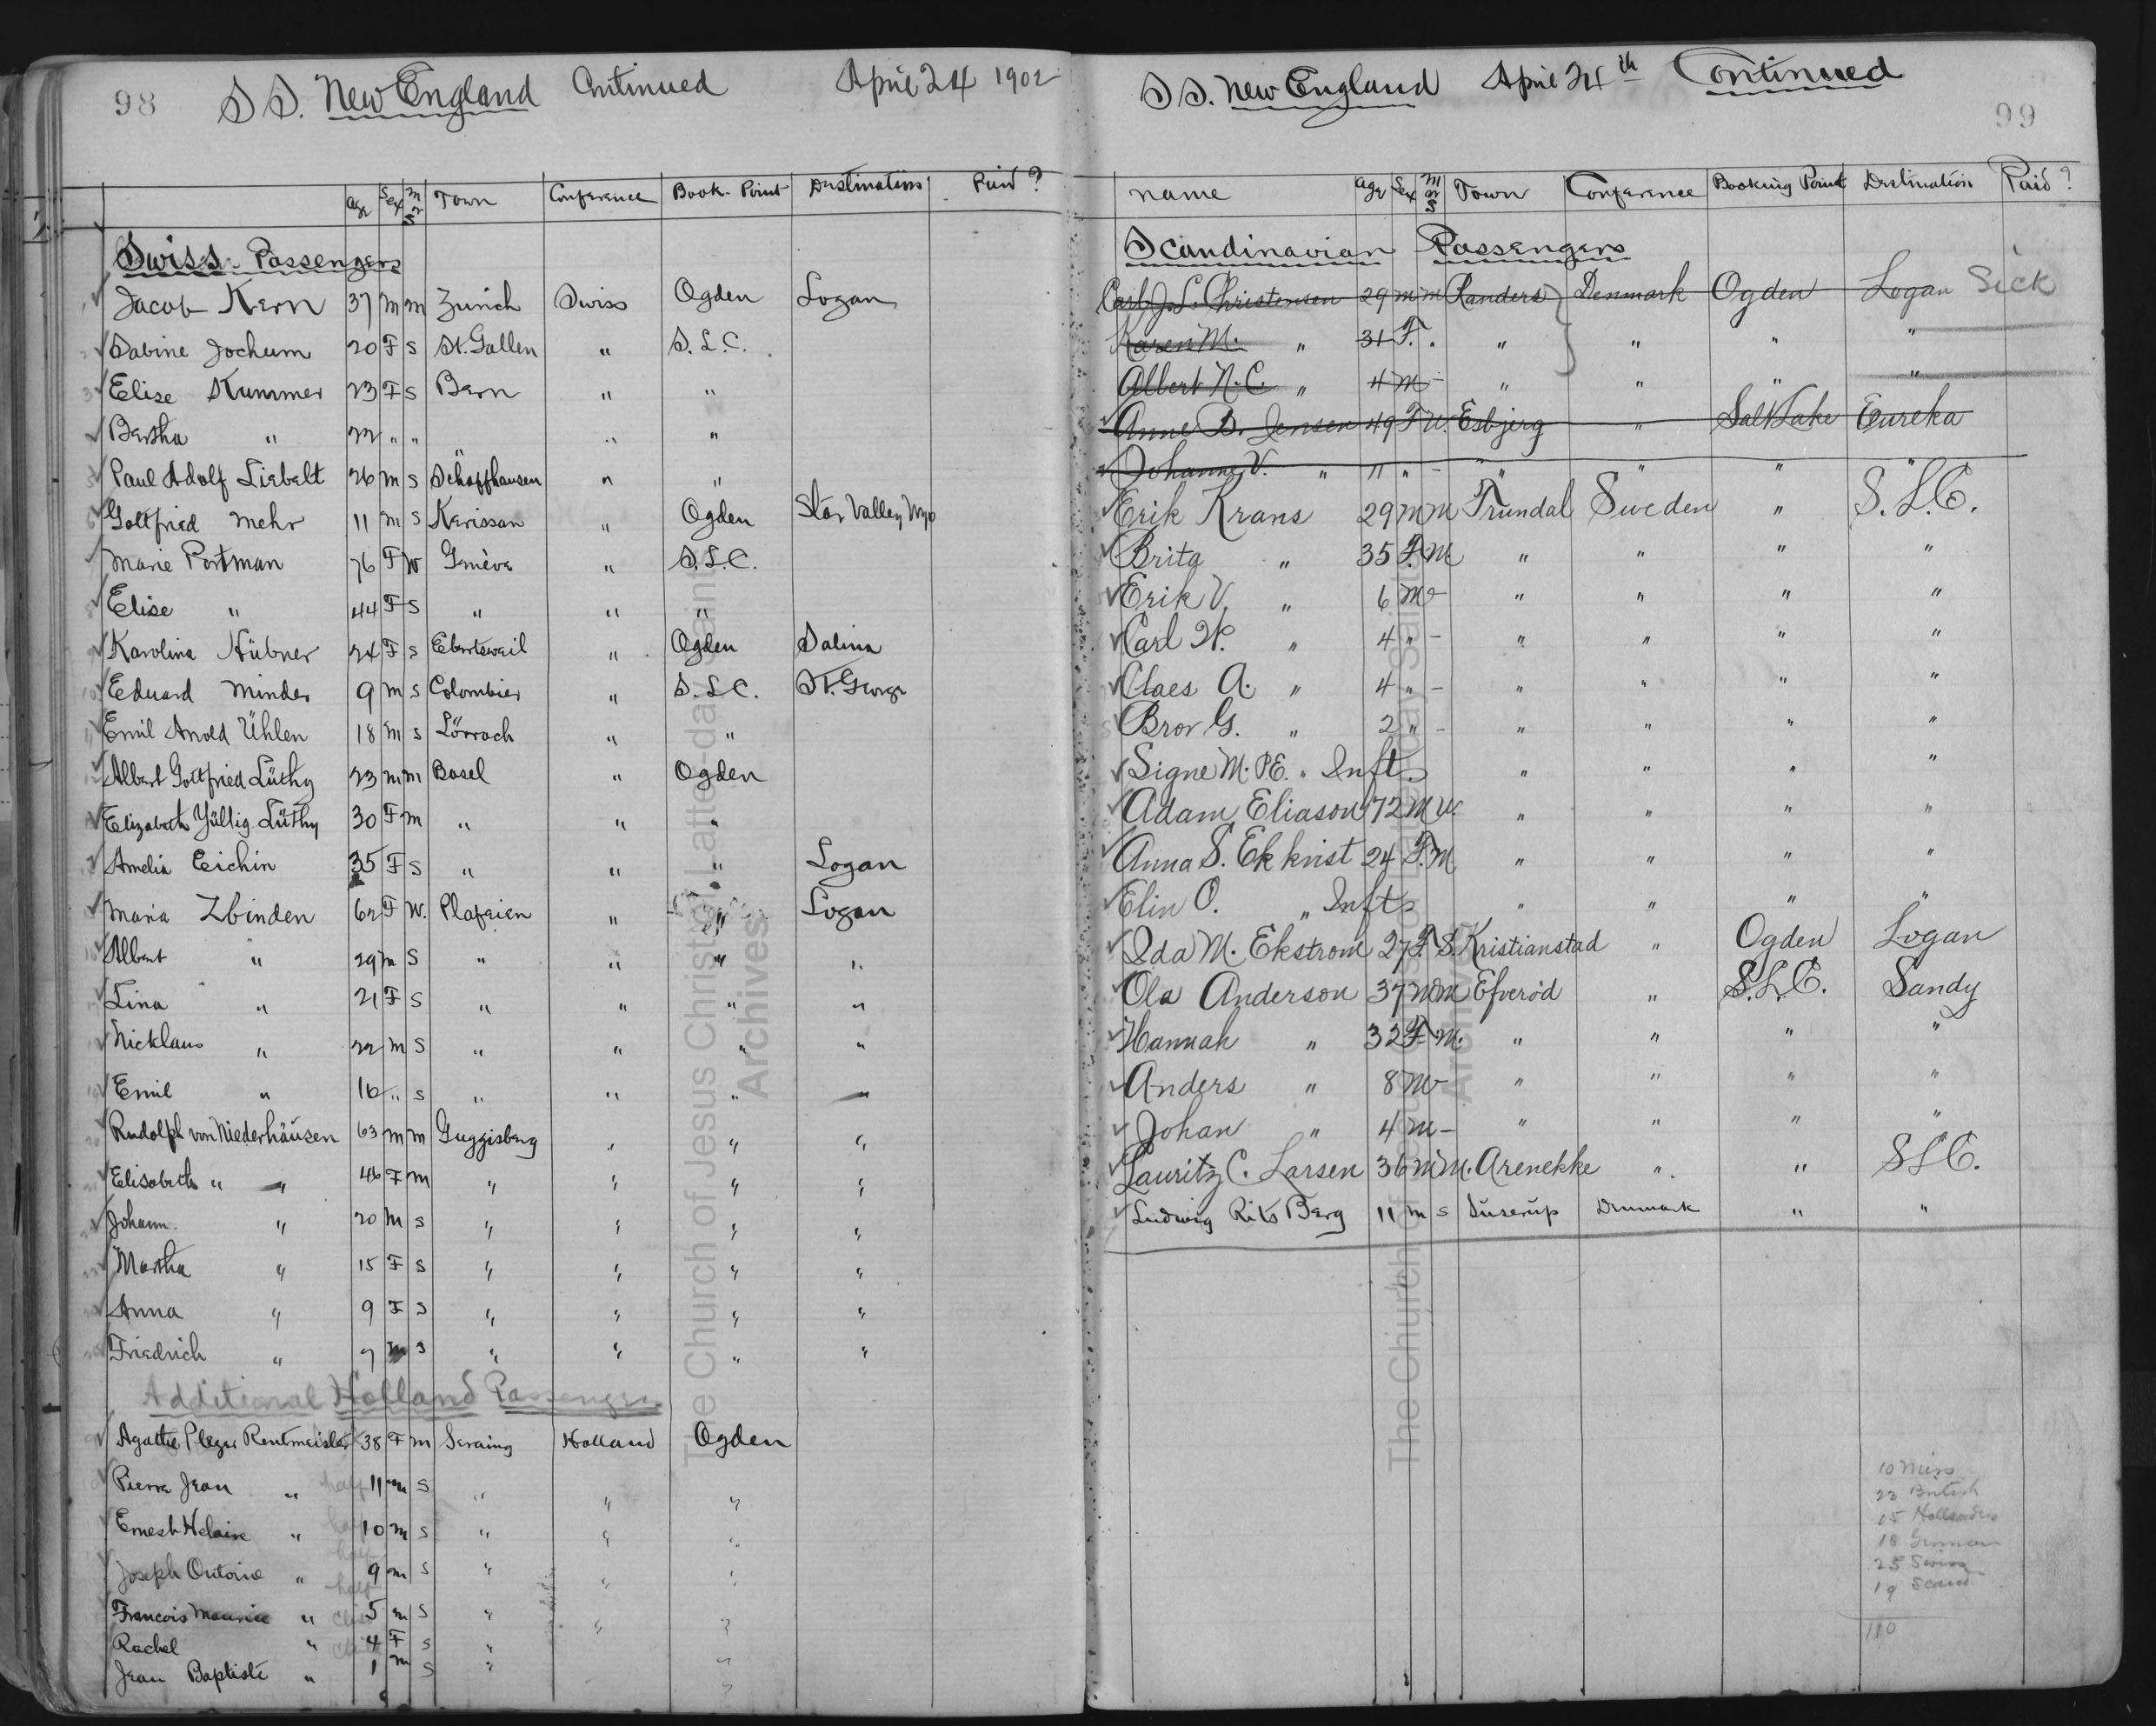 98 S S. New England Continued April 24 1902
Age Sex M or S Town Conference Book. Point Destination Paid ?
Swiss Passengers
Jacob Kern 37 m m Zurich Swiss Ogden Logan
Sabine Jochum 20 F s St. Gallen " S. L. C.
Elise Kummer 23 F s Bern " "
Bertha " 22 " " " "
Paul Adolf Liebelt 26 m s Schaffhausen " "
Gottfried Mehr 11 m s Kerissan " Ogden Star Valley Wyo
Marie Portman 76 F W Genève " S. L. C.
Elise " 44 F s " " "
Karolina Hübner 24 F s Ebertsweil " Ogden Salina
Eduard Minder 9 m s Colombier " S. L C. St. George
Emil Arnold Ühlen 18 m s Lörrach " "
Albert Gottfried Lüthy 23 m m Basel " Ogden
Elizabeth Yüllig Lüthy 30 F m " " "
Amelia Eichin 35 F s " " " Logan
Maria Zbinden 62 F W. Plafeien " " Logan
Albert " 29 m s " " " "
Lina " 21 F s " " " "
Nicklaus " 22 m s " " " "
Emil " 16 " s " " " "
Rudolph von Niederhäusen 63 m m Guggisberg " " "
Elisabeth " " 46 F m " " " "
Johann " 20 m s " " " "
Martha " 15 F s " " " "
Anna " 9 F s " " " "
Friedrich " 7 m s " " " "
Additional Holland Passengers
Agathe Pleger Rentmeister 38 F m Seraing Holland Ogden
Pierre Jean " half 11 m s " " "
Ernest Helaire " half 10 m s " " "
Joseph Ontoine " half 9 m s " " "
Francois Maurice " 5 m s " " "
Rachel " 4 F s " "
Jean Baptiste " 1 m s " "
S S. New England April 24th Continued
99
name Age Sex M or S Town Conference Booking Point Destination Paid ?
Scandinavian Passengers
Carl J. L. Christensen 29 m m Randers Denmark Ogden Logan Sick
Karen M. " 31 F. " " " " "
Albert N. C. " 4 m - " " " "
Anne B. Jensen 49 F W. Esbjerg " Salt Lake Eureka
Johanne V. " 11 " - " " " "
Erik Krans 29 m M Trundal Sweden " S. L. C.
Brita " 35 F. M " " " "
Erik V. " 6 m - " " " "
Carl W. " 4 " - " " " "
Claes A. " 4 " - " " " "
Bror G. " 2 " - " " " "
Signe M. P.E. " Inft. " " " "
Adam Eliason 72 M W. " " " "
Anna S. Ekkvist 24 F. M " " " "
Elin O. " Inft " " " "
Ida M. Ekstrom 27 F. S. Kristianstad " Ogden Logan
Ola Anderson 37 M M Efveröd " S. L. C. Sandy
Hannah " 32 F. M. " " " "
Anders " 8 M - " " " "
Johan " 4 M - " " " "
Lauritz C. Larsen 36 M M. Arenekke " " S L C.
Ludwig Rits Berg 11 m s Suserup Denmark " "
10 Miss
23 British
15 Hollanders
18 German
25 Swiss
19 Scand
110
The Church of Jesus Christ of Latter-day Saints
Archives
The Church of Jesus Christ of Latter-day Saints
Archives